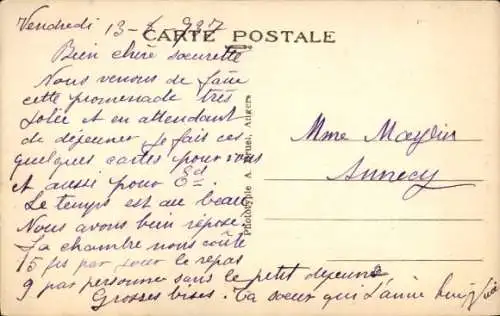 Vendredi 13-8-937
CARTE POSTALE
Bien chère soeurette
Nous venons de faire
cette promenade très
jolie et en attendant
de déjeuner je fais ces
quelques cartes pour vous
et aussi pour Ed.
Le temps est au beau
Nous avons bien reposé.
La chambre nous coûte
15 frs par jour le repas
9 par personne sans le petit déjeuné
Grosses bises. Ta soeur qui t'aime bien
Mme Maydin
Annecy
Phototypie A. Bruel, Angers